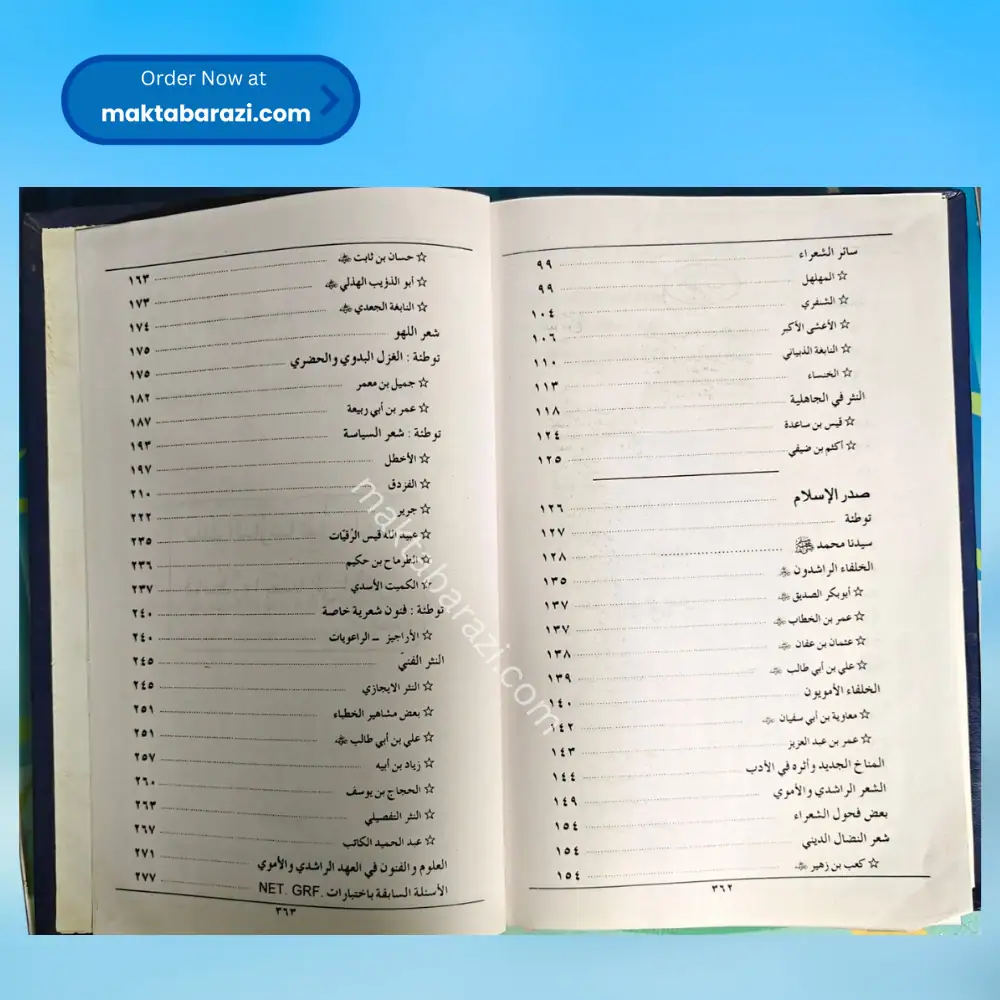 Order Now at
maktabarazi.com
سائر الشعراء ٩٩
☆ المهلهل ٩٩
☆ الشنفري ١٠٤
☆ الأعشى الأكبر ١٠٦
☆ النابغة الذبياني ١١٠
☆ الخنساء ١١٣
النثر في الجاهلية ١١٨
☆ قيس بن ساعدة ١٢٤
☆ أكثم بن ضيفي ١٢٥
صدر الإسلام ١٢٦
توطئة ١٢٧
سيدنا محمد ﷺ ١٢٨
الخلفاء الراشدون ١٣٥
☆ أبوبكر الصديق ١٣٧
☆ عمر بن الخطاب ١٣٧
☆ عثمان بن عفان ١٣٨
☆ علي بن أبي طالب ١٣٩
الخلفاء الأمويون ١٤٠
☆ معاوية بن أبي سفيان ١٤٢
☆ عمر بن عبد العزيز ١٤٣
المناخ الجديد وأثره في الأدب ١٤٤
الشعر الراشدي والأموي ١٤٩
بعض فحول الشعراء ١٥٤
شعر النضال الديني ١٥٤
☆ كعب بن زهير ١٥٤
٣٦٢
☆ حسان بن ثابت ١٦٣
☆ أبو الذؤيب الهذلي ١٧٣
☆ النابغة الجعدي ١٧٤
شعر اللهو ١٧٥
توطئة : الغزل البدوي والحضري ١٧٥
☆ جميل بن معمر ١٨٢
☆ عمر بن أبي ربيعة ١٨٧
توطئة : شعر السياسة ١٩٣
☆ الأخطل ١٩٧
☆ الفزدق ٢١٠
☆ جرير ٢٢٢
☆ عبيد الله قيس الرُقيّات ٢٣٥
☆ الطرماح بن حكيم ٢٣٦
☆ الكميت الأسدي ٢٣٧
توطئة : فنون شعرية خاصة ٢٤٠
☆ الأراجيز – الراعويات ٢٤٠
النثر الفنيّ ٢٤٥
☆ النثر الايجازي ٢٤٥
☆ بعض مشاهير الخطباء ٢٥١
☆ علي بن أبي طالب ٢٥١
☆ زياد بن أبيه ٢٥٧
☆ الحجاج بن يوسف ٢٦٠
☆ النثر التفصيلي ٢٦٣
☆ عبد الحميد الكاتب ٢٦٧
العلوم والفنون في العهد الراشدي والأموي ٢٧١
الأسئلة السابقة باختبارات NET. GRF. ٢٧٧
٣٦٣
maktabarazi.com